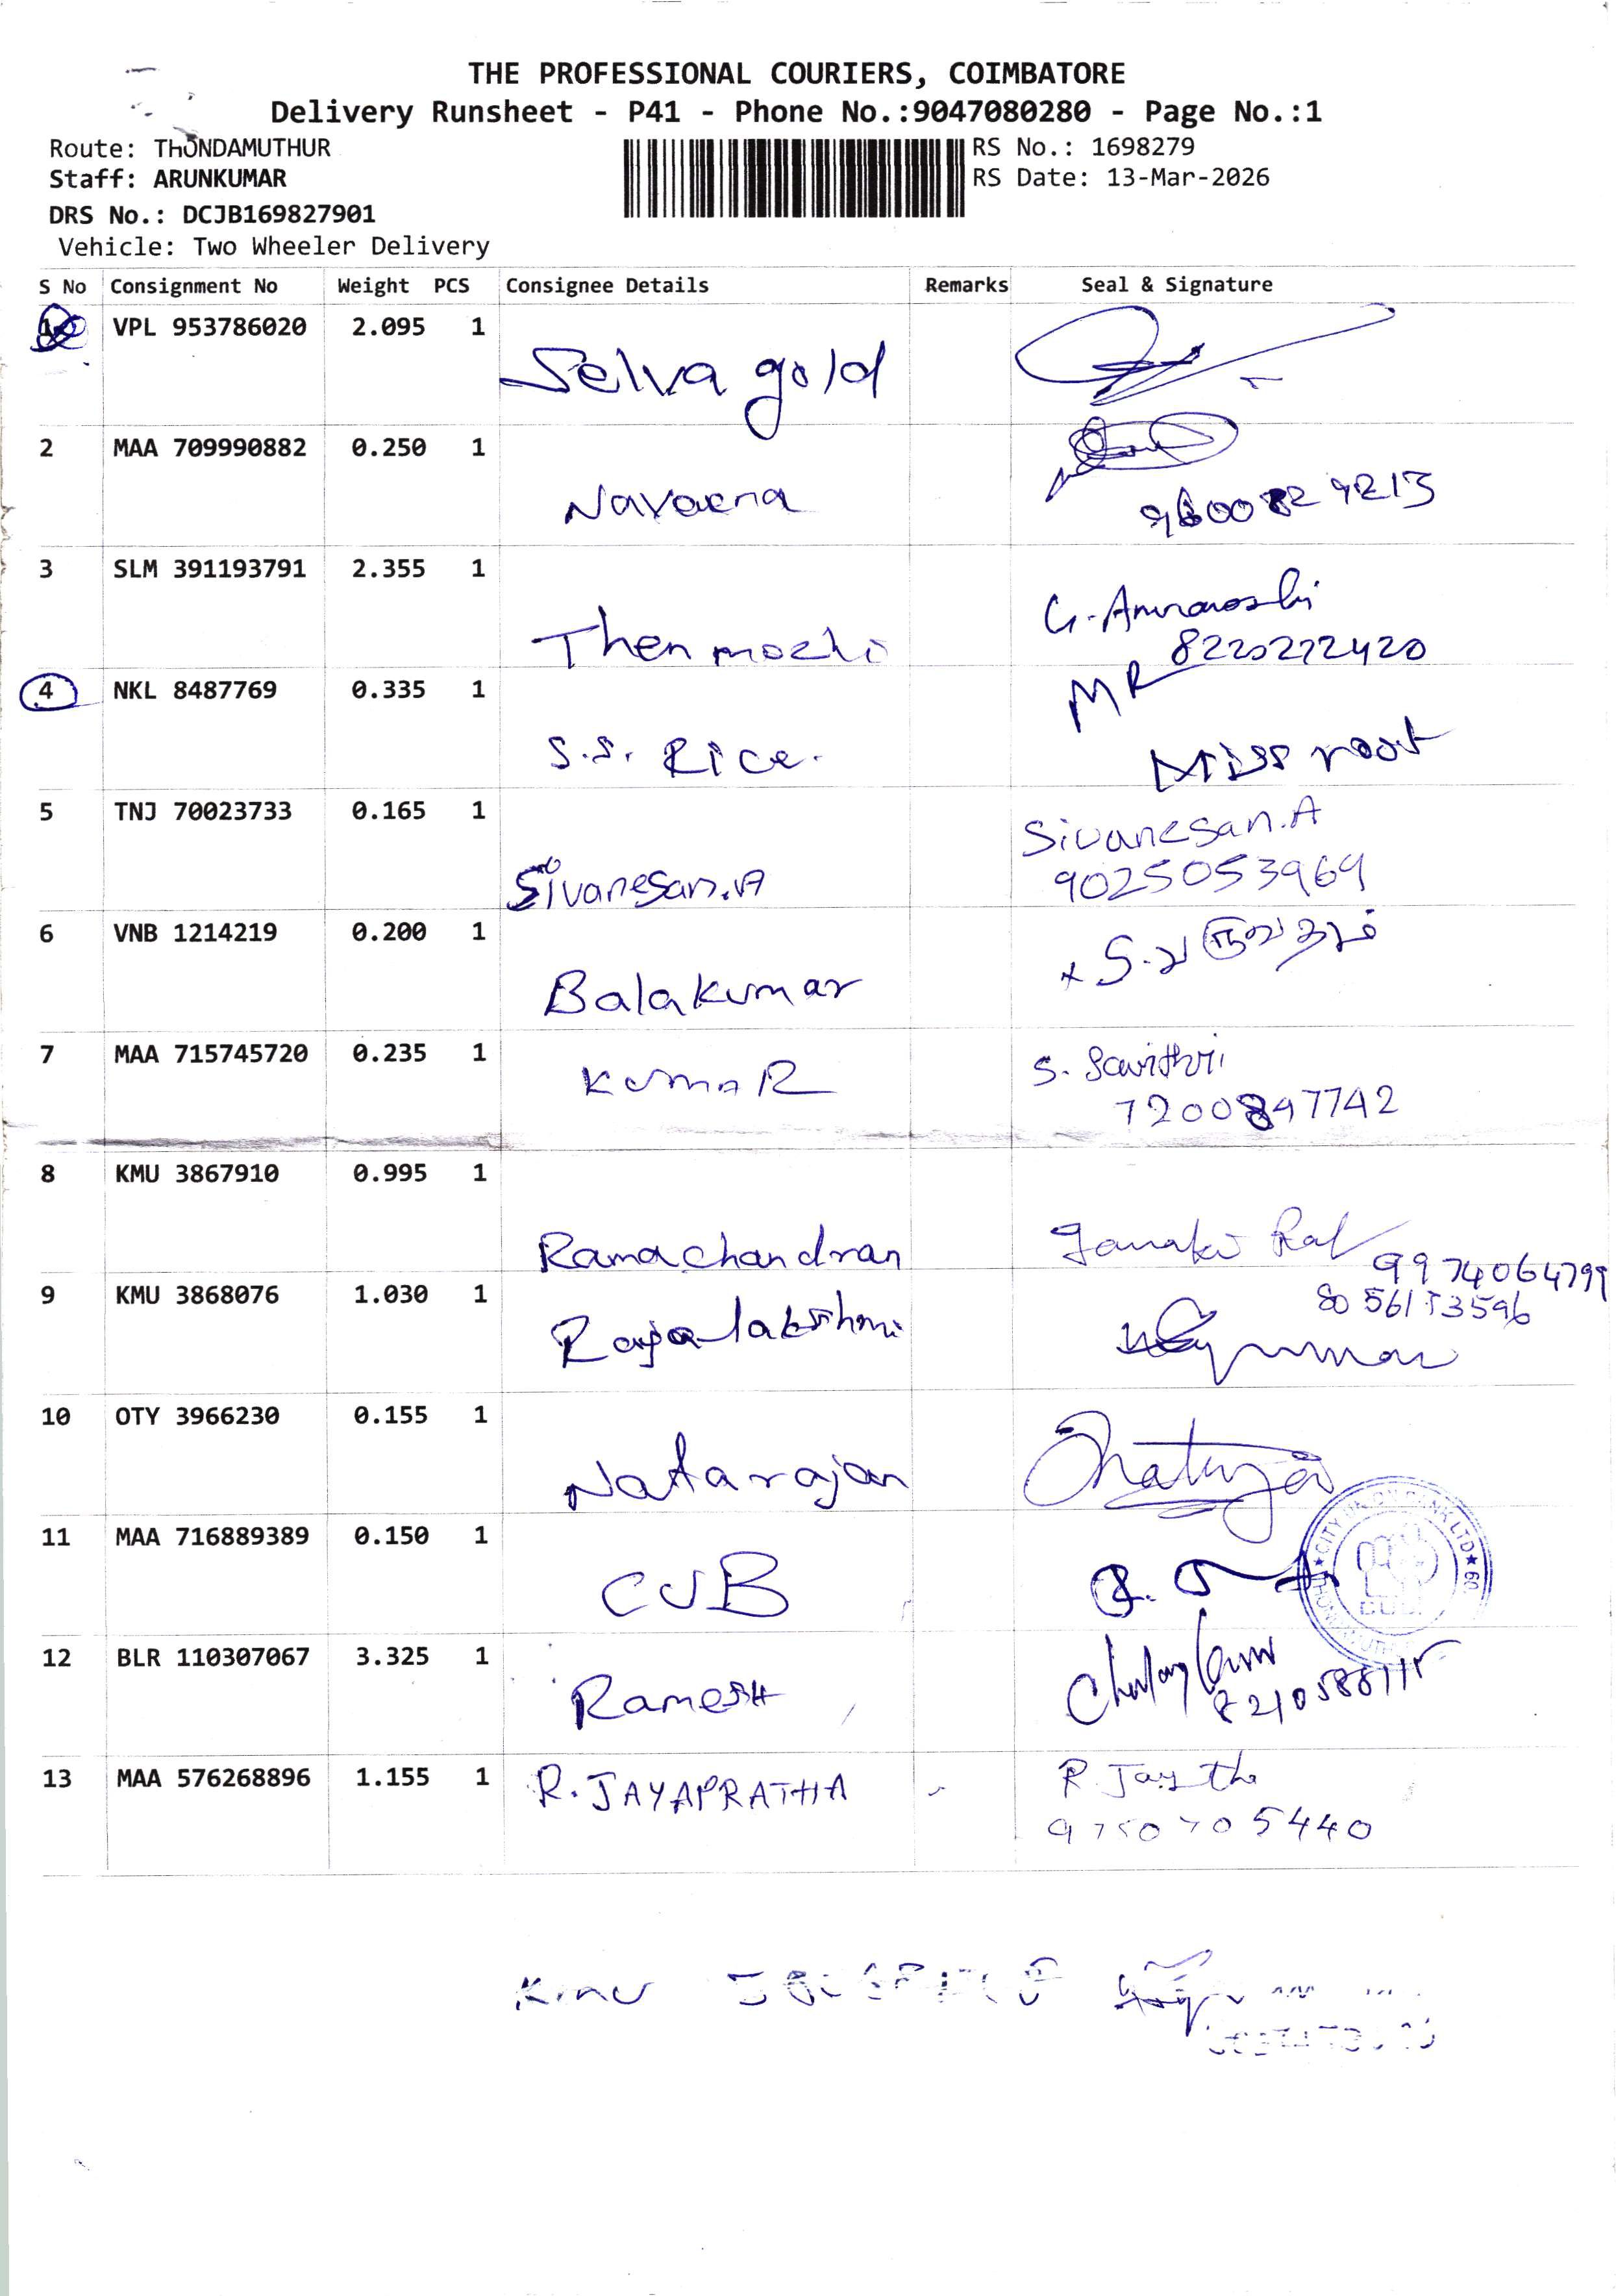 THE PROFESSIONAL COURIERS, COIMBATORE
Delivery Runsheet - P41 - Phone No.:9047080280 - Page No.:1
Route: THONDAMUTHUR
RS No.: 1698279
Staff: ARUNKUMAR
RS Date: 13-Mar-2026
DRS No.: DCJB169827901
Vehicle: Two Wheeler Delivery
S No Consignment No Weight PCS Consignee Details Remarks Seal & Signature
1 VPL 953786020 2.095 1
Selva gold
2 MAA 709990882 0.250 1
Navaena
3 SLM 391193791 2.355 1
Thenmozhi
8220272420
4 NKL 8487769 0.335 1
MR
S.S. Rice.
Miss root
5 TNJ 70023733 0.165 1
Sivanesan.A
Sivanesan.A
9025053969
6 VNB 1214219 0.200 1
Balakumar
7 MAA 715745720 0.235 1
KumaR
S. Savithri
7200897742
8 KMU 3867910 0.995 1
Ramachandran
9 KMU 3868076 1.030 1
Rajalakshmi
10 OTY 3966230 0.155 1
Natarajan
11 MAA 716889389 0.150 1
CUB
CITY UNION BANK LTD
12 BLR 110307067 3.325 1
Ramesh
13 MAA 576268896 1.155 1
R. JAYAPRATHA